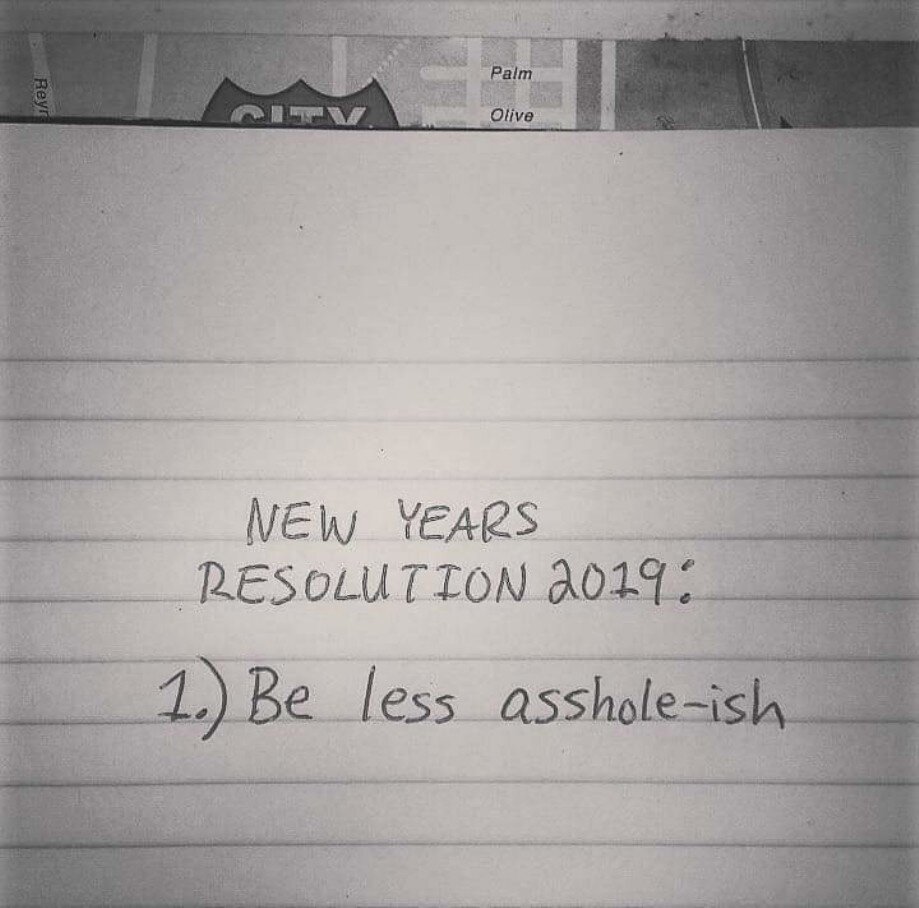 Palm
CITY
Olive
NEW YEARS
RESOLUTION 2019:
1.) Be less asshole-ish